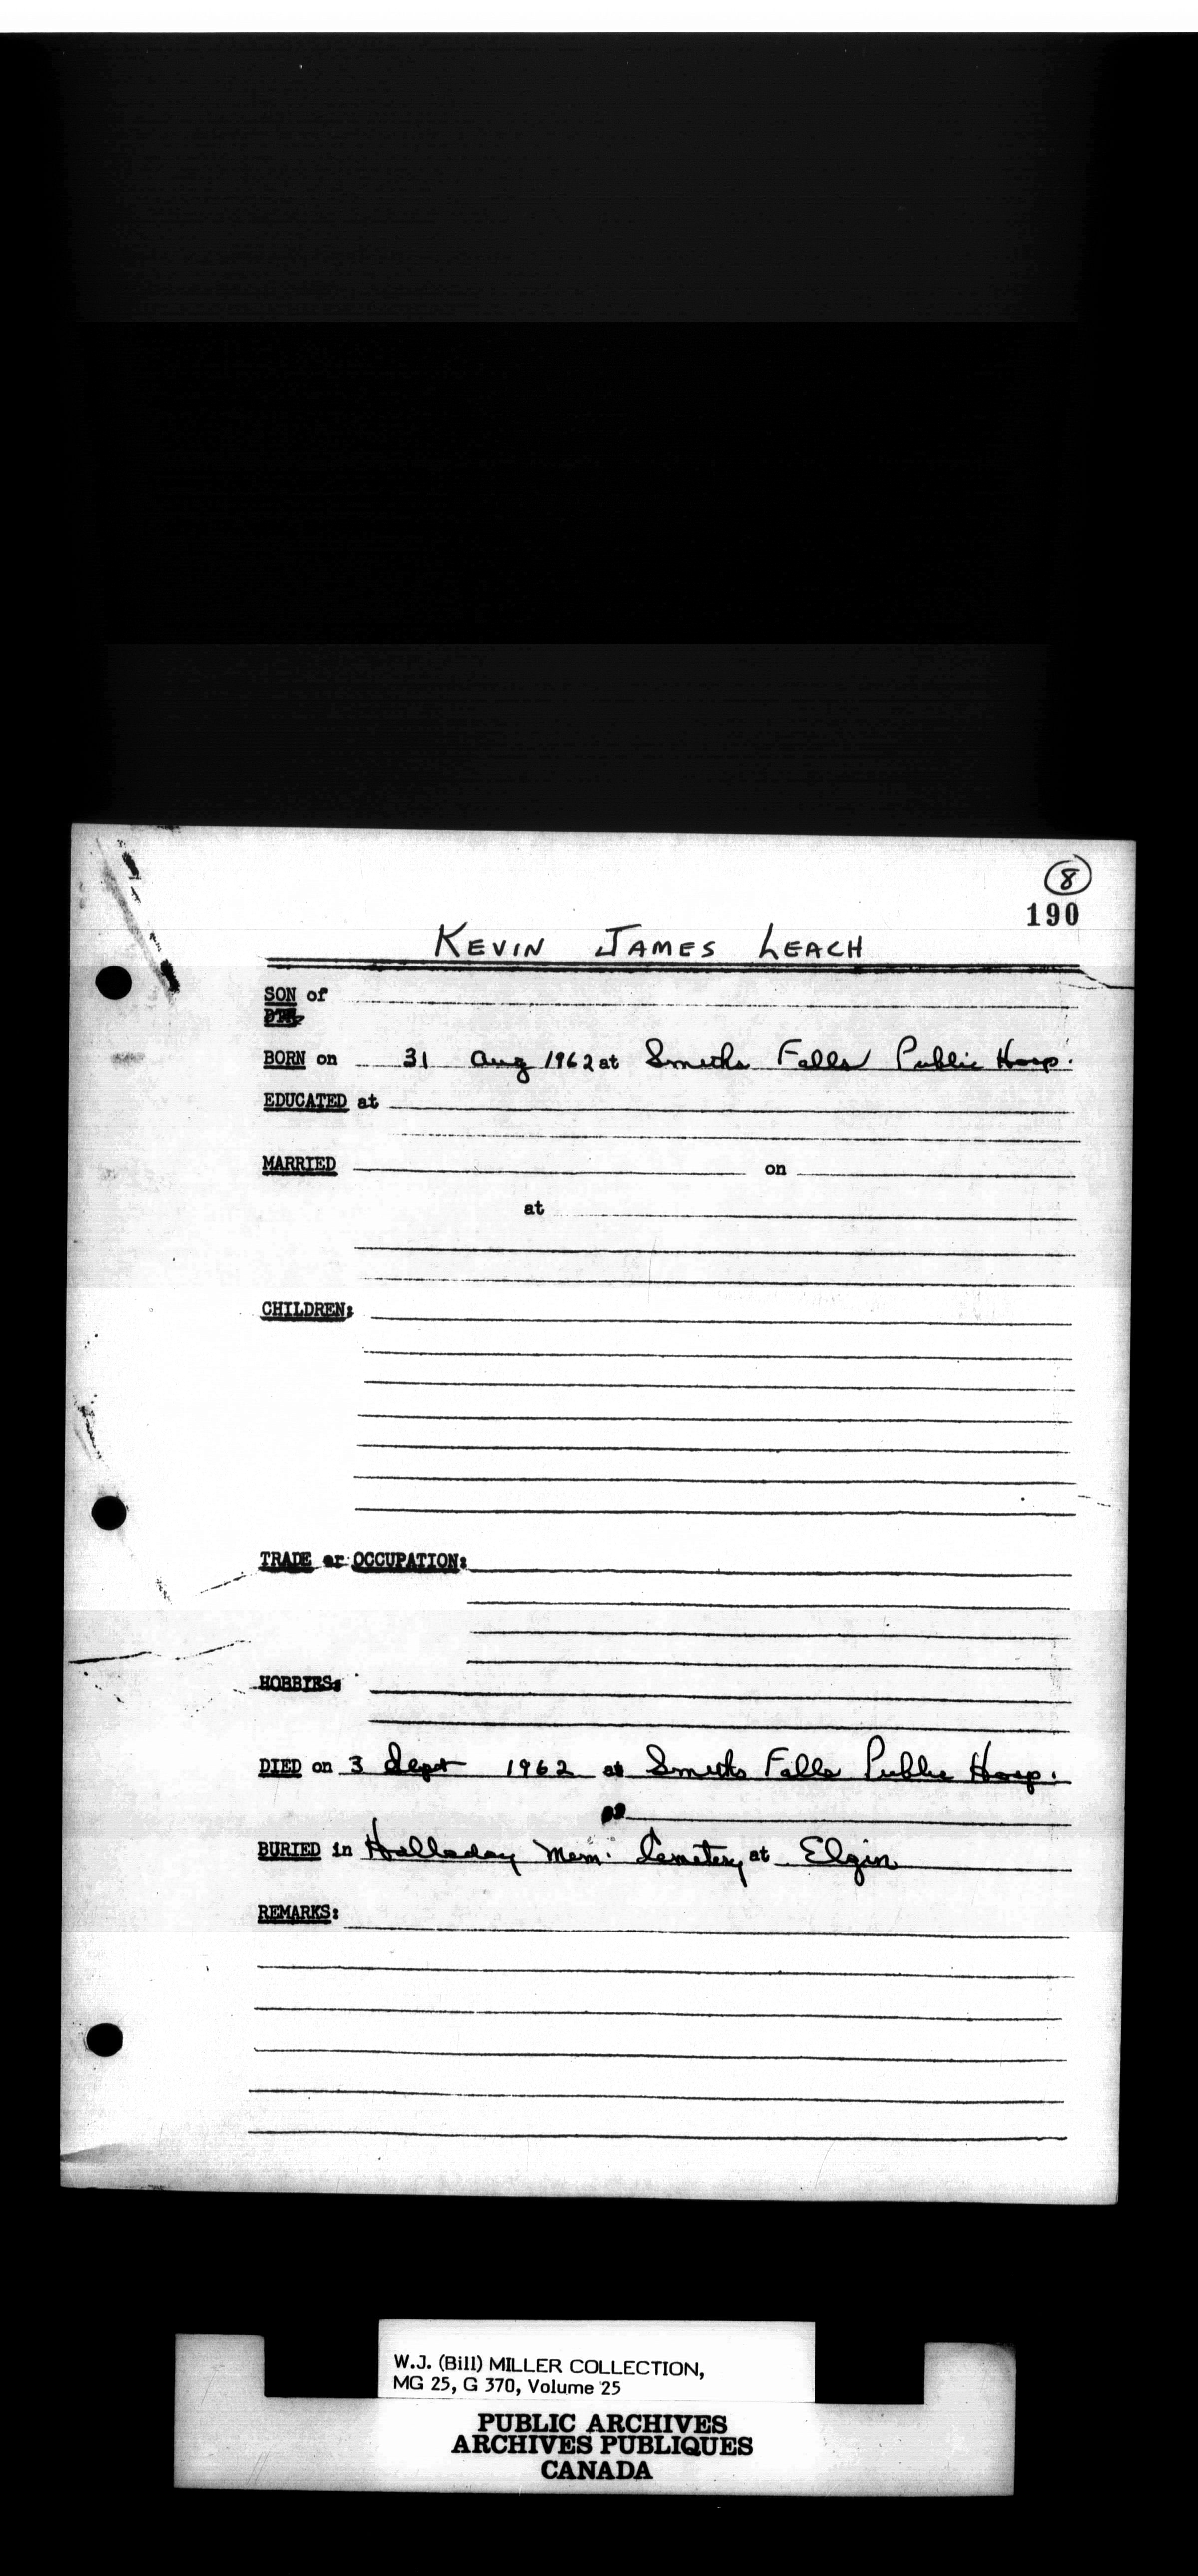 8
190
KEVIN JAMES LEACH
SON of
DTR
BORN on 31 Aug 1962 at Smiths Falls Public Hosp.
EDUCATED at
MARRIED on
at
CHILDREN:
TRADE or OCCUPATION:
HOBBIES:
DIED on 3 Sept 1962 at Smiths Falls Public Hosp.
BURIED in Halladay Mem. Cemetery at Elgin
REMARKS:
W.J. (Bill) MILLER COLLECTION,
MG 25, G 370, Volume 25
PUBLIC ARCHIVES
ARCHIVES PUBLIQUES
CANADA